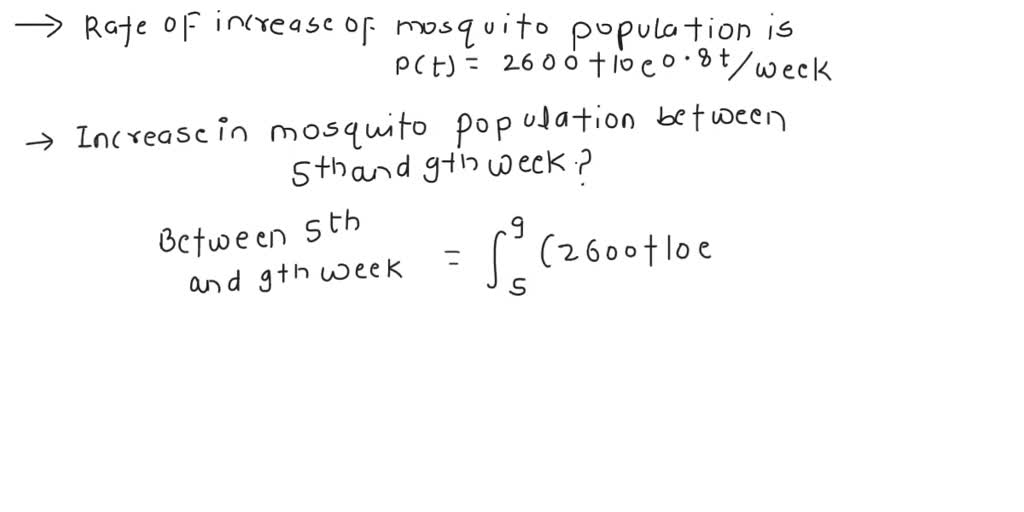 → Rate of increase of mosquito population is
P(t) = 2600 + 10e0.8t/week
→ Increase in mosquito population between
5th and 9th week?
Between 5th
and 9th week = ∫₅⁹ (2600+10e